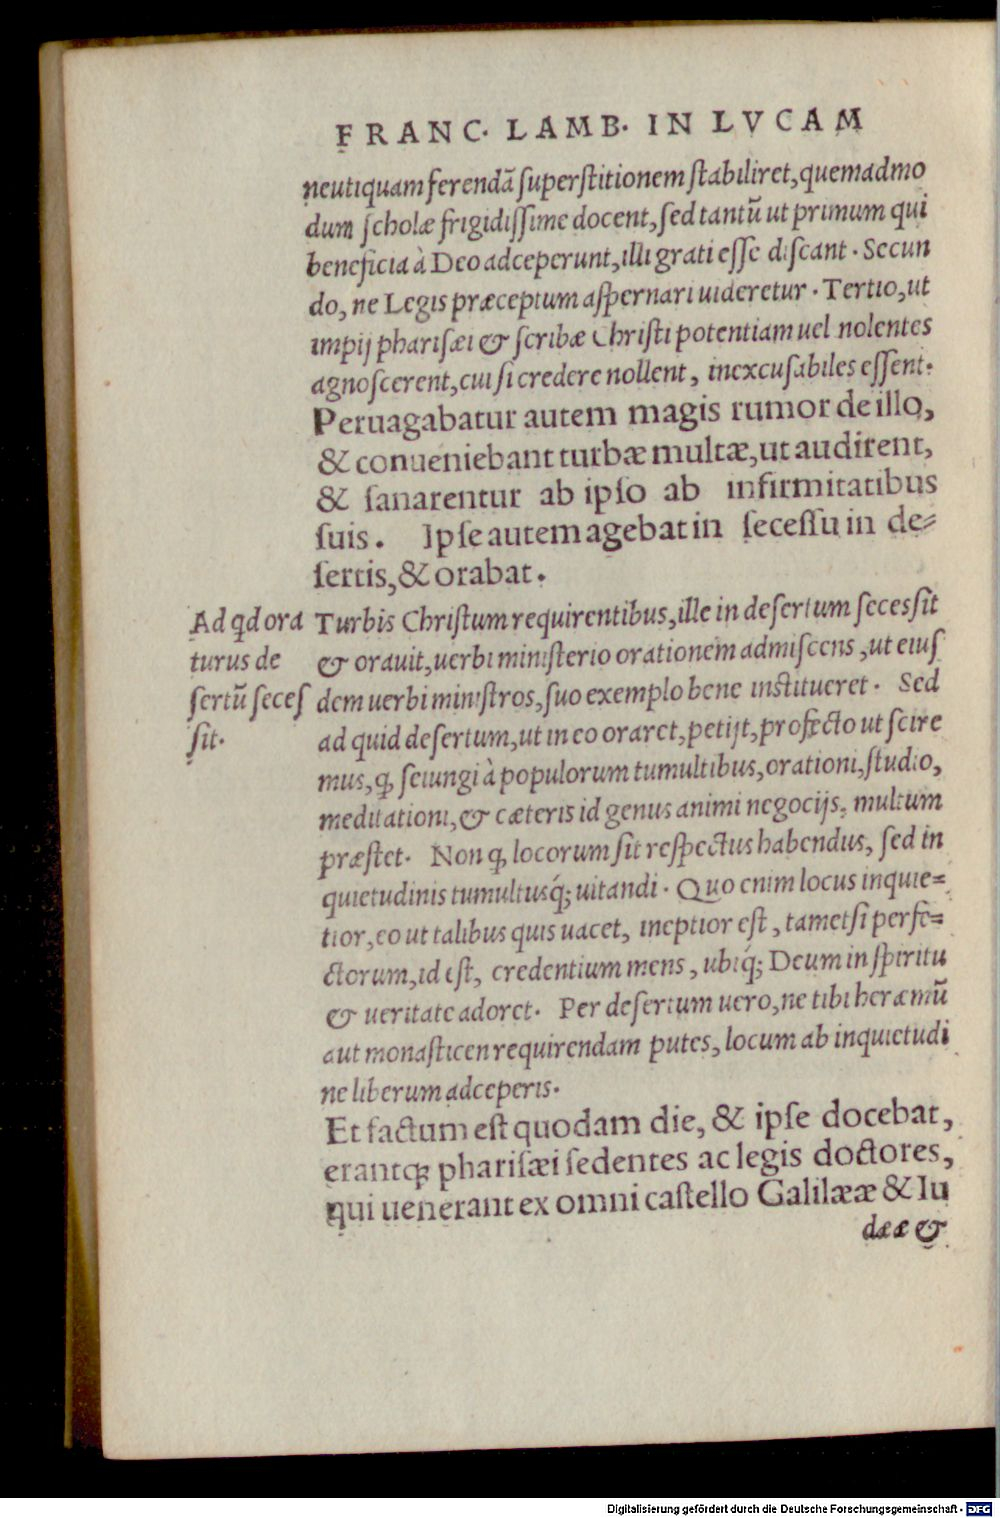 FRANC. LAMB. IN LVCAM
neutiquam ferendā ſuperſtitionem ſtabiliret, quemadmo
dum ſcholæ frigidiſſime docent, ſed tantū ut primum qui
beneficia à Deo adceperunt, illi grati eſſe diſcant. Secun
do, ne Legis præceptum aſpernari uideretur. Tertio, ut
impij phariſæi & ſcribæ Chriſti potentiam uel nolentes
agnoſcerent, cui ſi credere nollent, inexcuſabiles eſſent.
Peruagabatur autem magis rumor de illo,
& conueniebant turbæ multæ, ut audirent,
& ſanarentur ab ipſo ab infirmitatibus
ſuis. Ipſe autem agebat in ſeceſſu in de⸗
ſertis, & orabat.
Ad qd ora
turus de
ſertū ſeceſ
ſit.
Turbis Chriſtum requirentibus, ille in deſertum ſecesſit
& orauit, uerbi miniſterio orationem admiſcens, ut eiuſ
dem uerbi miniſtros, ſuo exemplo bene inſtitueret. Sed
ad quid deſertum, ut in eo oraret, petijt, profecto ut ſcire
mus, ꝙ ſeiungi à populorum tumultibus, orationi, ſtudio,
meditationi, & cæteris id genus animi negocijs, multum
præſtet. Non ꝙ locorum ſit reſpectus habendus, ſed in
quietudinis tumultusq́; uitandi. Quo enim locus inquie⸗
tior, eo ut talibus quis uacet, ineptior eſt, tametſi perfe⸗
ctorum, id eſt, credentium mens, ubiq́; Deum in ſpiritu
& ueritate adoret. Per deſertum uero, ne tibi heræmū
aut monaſticen requirendam putes, locum ab inquietudi
ne liberum adceperis.
Et factum eſt quodam die, & ipſe docebat,
erantꝗ phariſæi ſedentes ac legis doctores,
qui uenerant ex omni caſtello Galilææ & Iu
dææ &
Digitalisierung gefördert durch die Deutsche Forschungsgemeinschaft - DFG